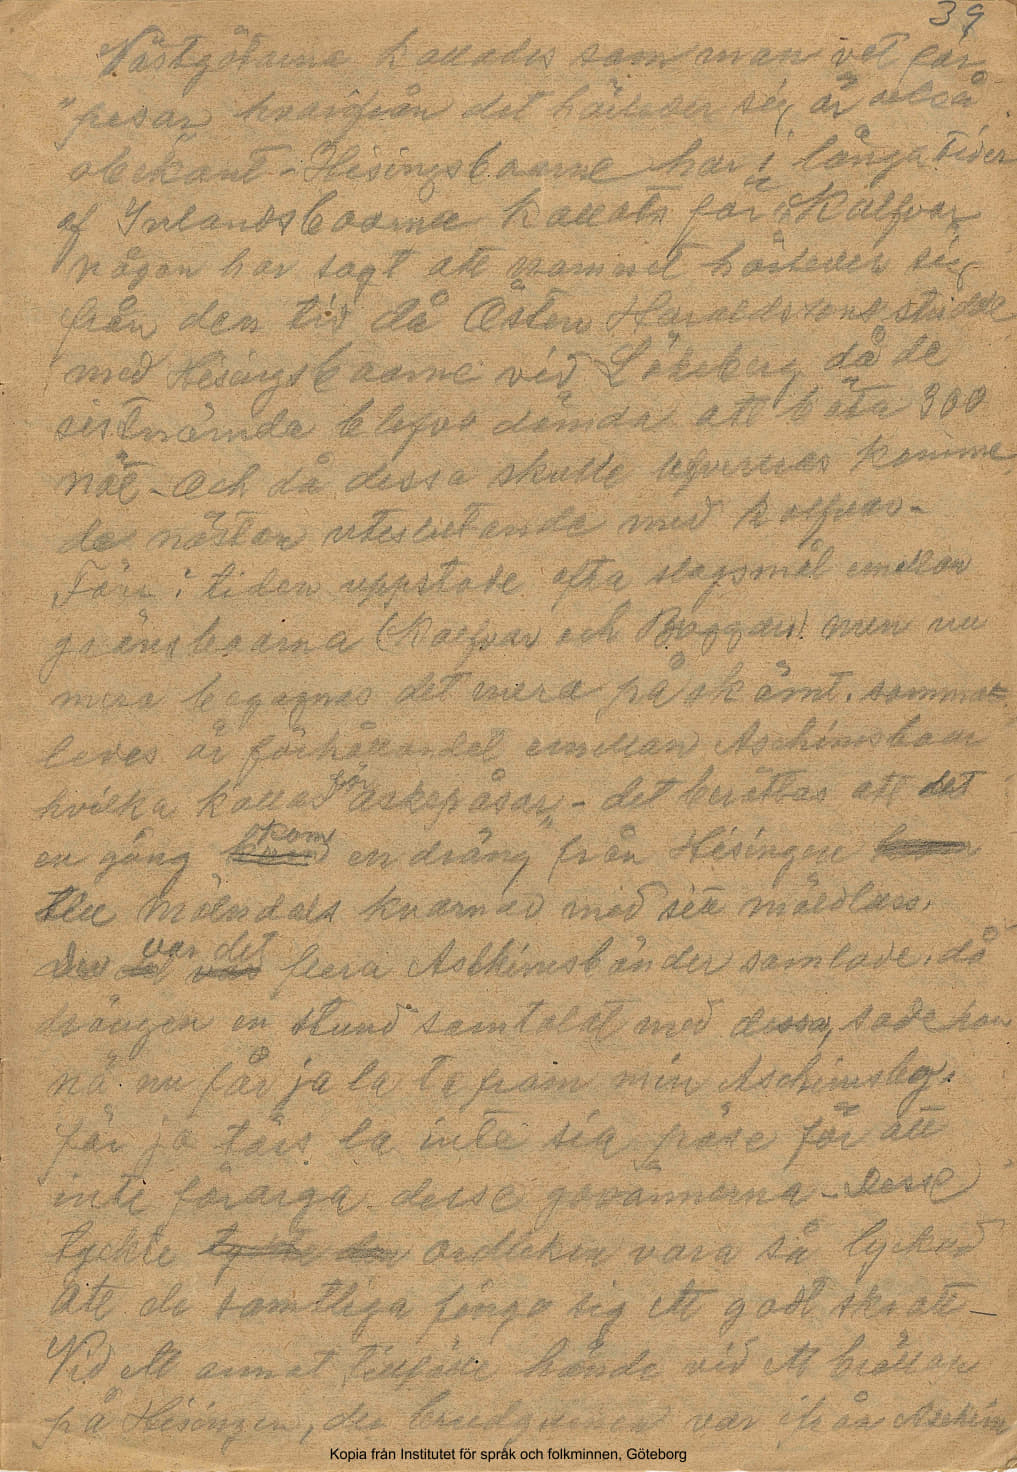 39
Västgötarna kallades som man vet för
"pesar" hvarifrån det härleder sig är också
obekant - Hisingsboarne har i långa tider
af Inlandsboarne kallats för "Kalfvar"
någon har sagt att namnet härleder sig
från den tid då Östen Haraldssons stridde
med Hisingsboarne vid Lökeberg då de
sistnämda blefvo dömda att böta 300
nöt - Och då dessa skulle lefvereras komme
de nästan uteslutande med kalfvar -
Förr i tiden uppstode ofta slagsmål emellan
gränsboarna (Kalfvar och Baggar) men nu
mera begagnas det mera på skämt. samma
ledes är förhållandet emellan Aschimsboar
hvilka kallas för Askepåsar" - det berättas att det
en gång kom en dräng från Hisingen
till Mölndals kvarnar med sitt mäldlass.
Der var det flera Aschimsbönder samlade, då
drängen en stund samtalat med dessa, sade han
nå nu får ja la ta fram min Aschimsbg.
för ja törs la inte sia påse för att
inte förarga desse govännerna - Desse
tyckte ordleken vara så lyckad
att de samtliga fingo sig ett godt skratt -
Vid ett annat tillfälle hände vid ett bröllop
på Hisingen, der brudgummen var ifrån Aschim
Kopia från Institutet för språk och folkminnen, Göteborg